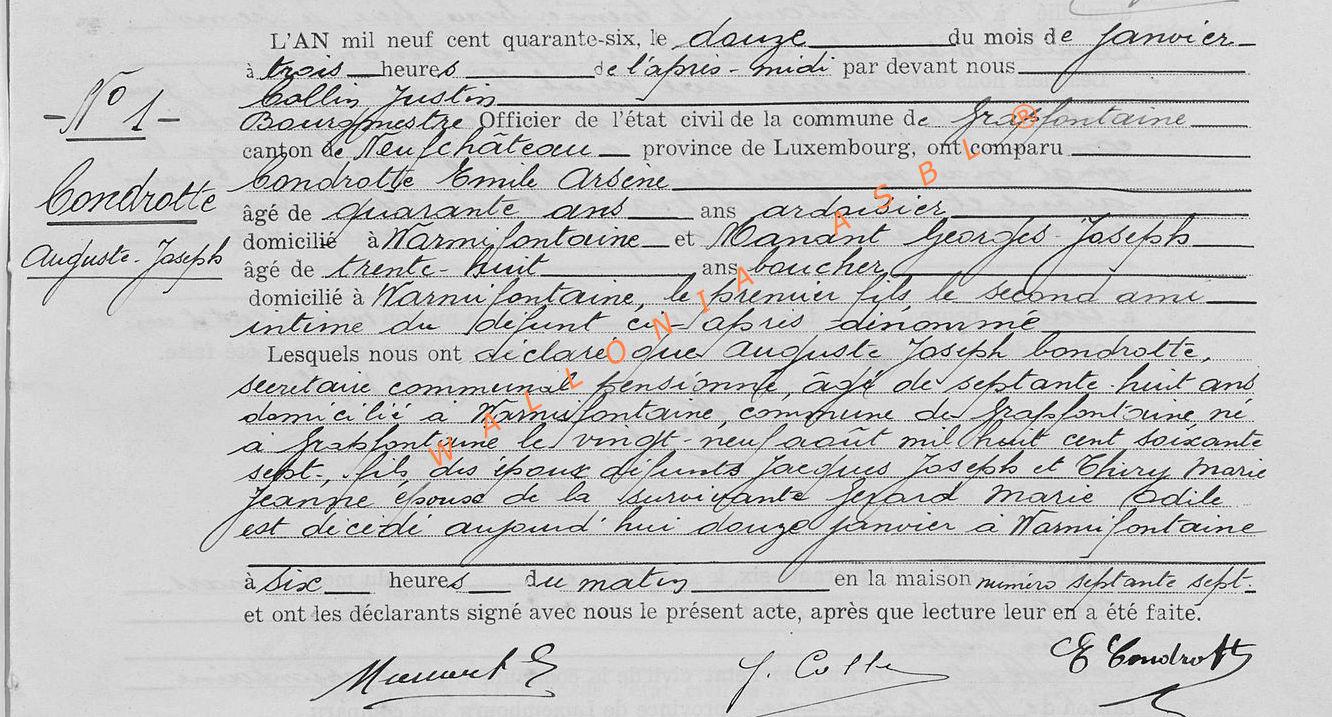 L'AN mil neuf cent quarante-six, le douze du mois de janvier
à trois heures de l'après-midi par devant nous
Collin Justin
Bourgmestre Officier de l'état civil de la commune de Grapfontaine
canton de Neufchâteau province de Luxembourg, ont comparu
- N° 1 -
Condrotte
Auguste-Joseph
Condrotte Emile Arsène
âgé de quarante ans ans ardoisier
domicilié à Warmifontaine et Manant Georges-Joseph
âgé de trente-huit ans boucher
domicilié à Warmifontaine, le premier fils le second ami
intime du défunt ci-après dénommé
Lesquels nous ont déclaré que Auguste Joseph Condrotte,
secrétaire communal pensionné, âgé de septante-huit ans
domicilié à Warmifontaine, commune de Grapfontaine, né
à Grapfontaine le vingt-neuf août mil huit cent soixante
sept, fils des époux défunts Jacques Joseph et Thiry Marie
Jeanne époux de la survivante Gérard Marie Odile
est décédé aujourd'hui douze janvier à Warmifontaine
à six heures du matin en la maison numéro septante sept.
et ont les déclarants signé avec nous le présent acte, après que lecture leur en a été faite.
J. Collin
E Condrotte
WALLONIA ASBL ®